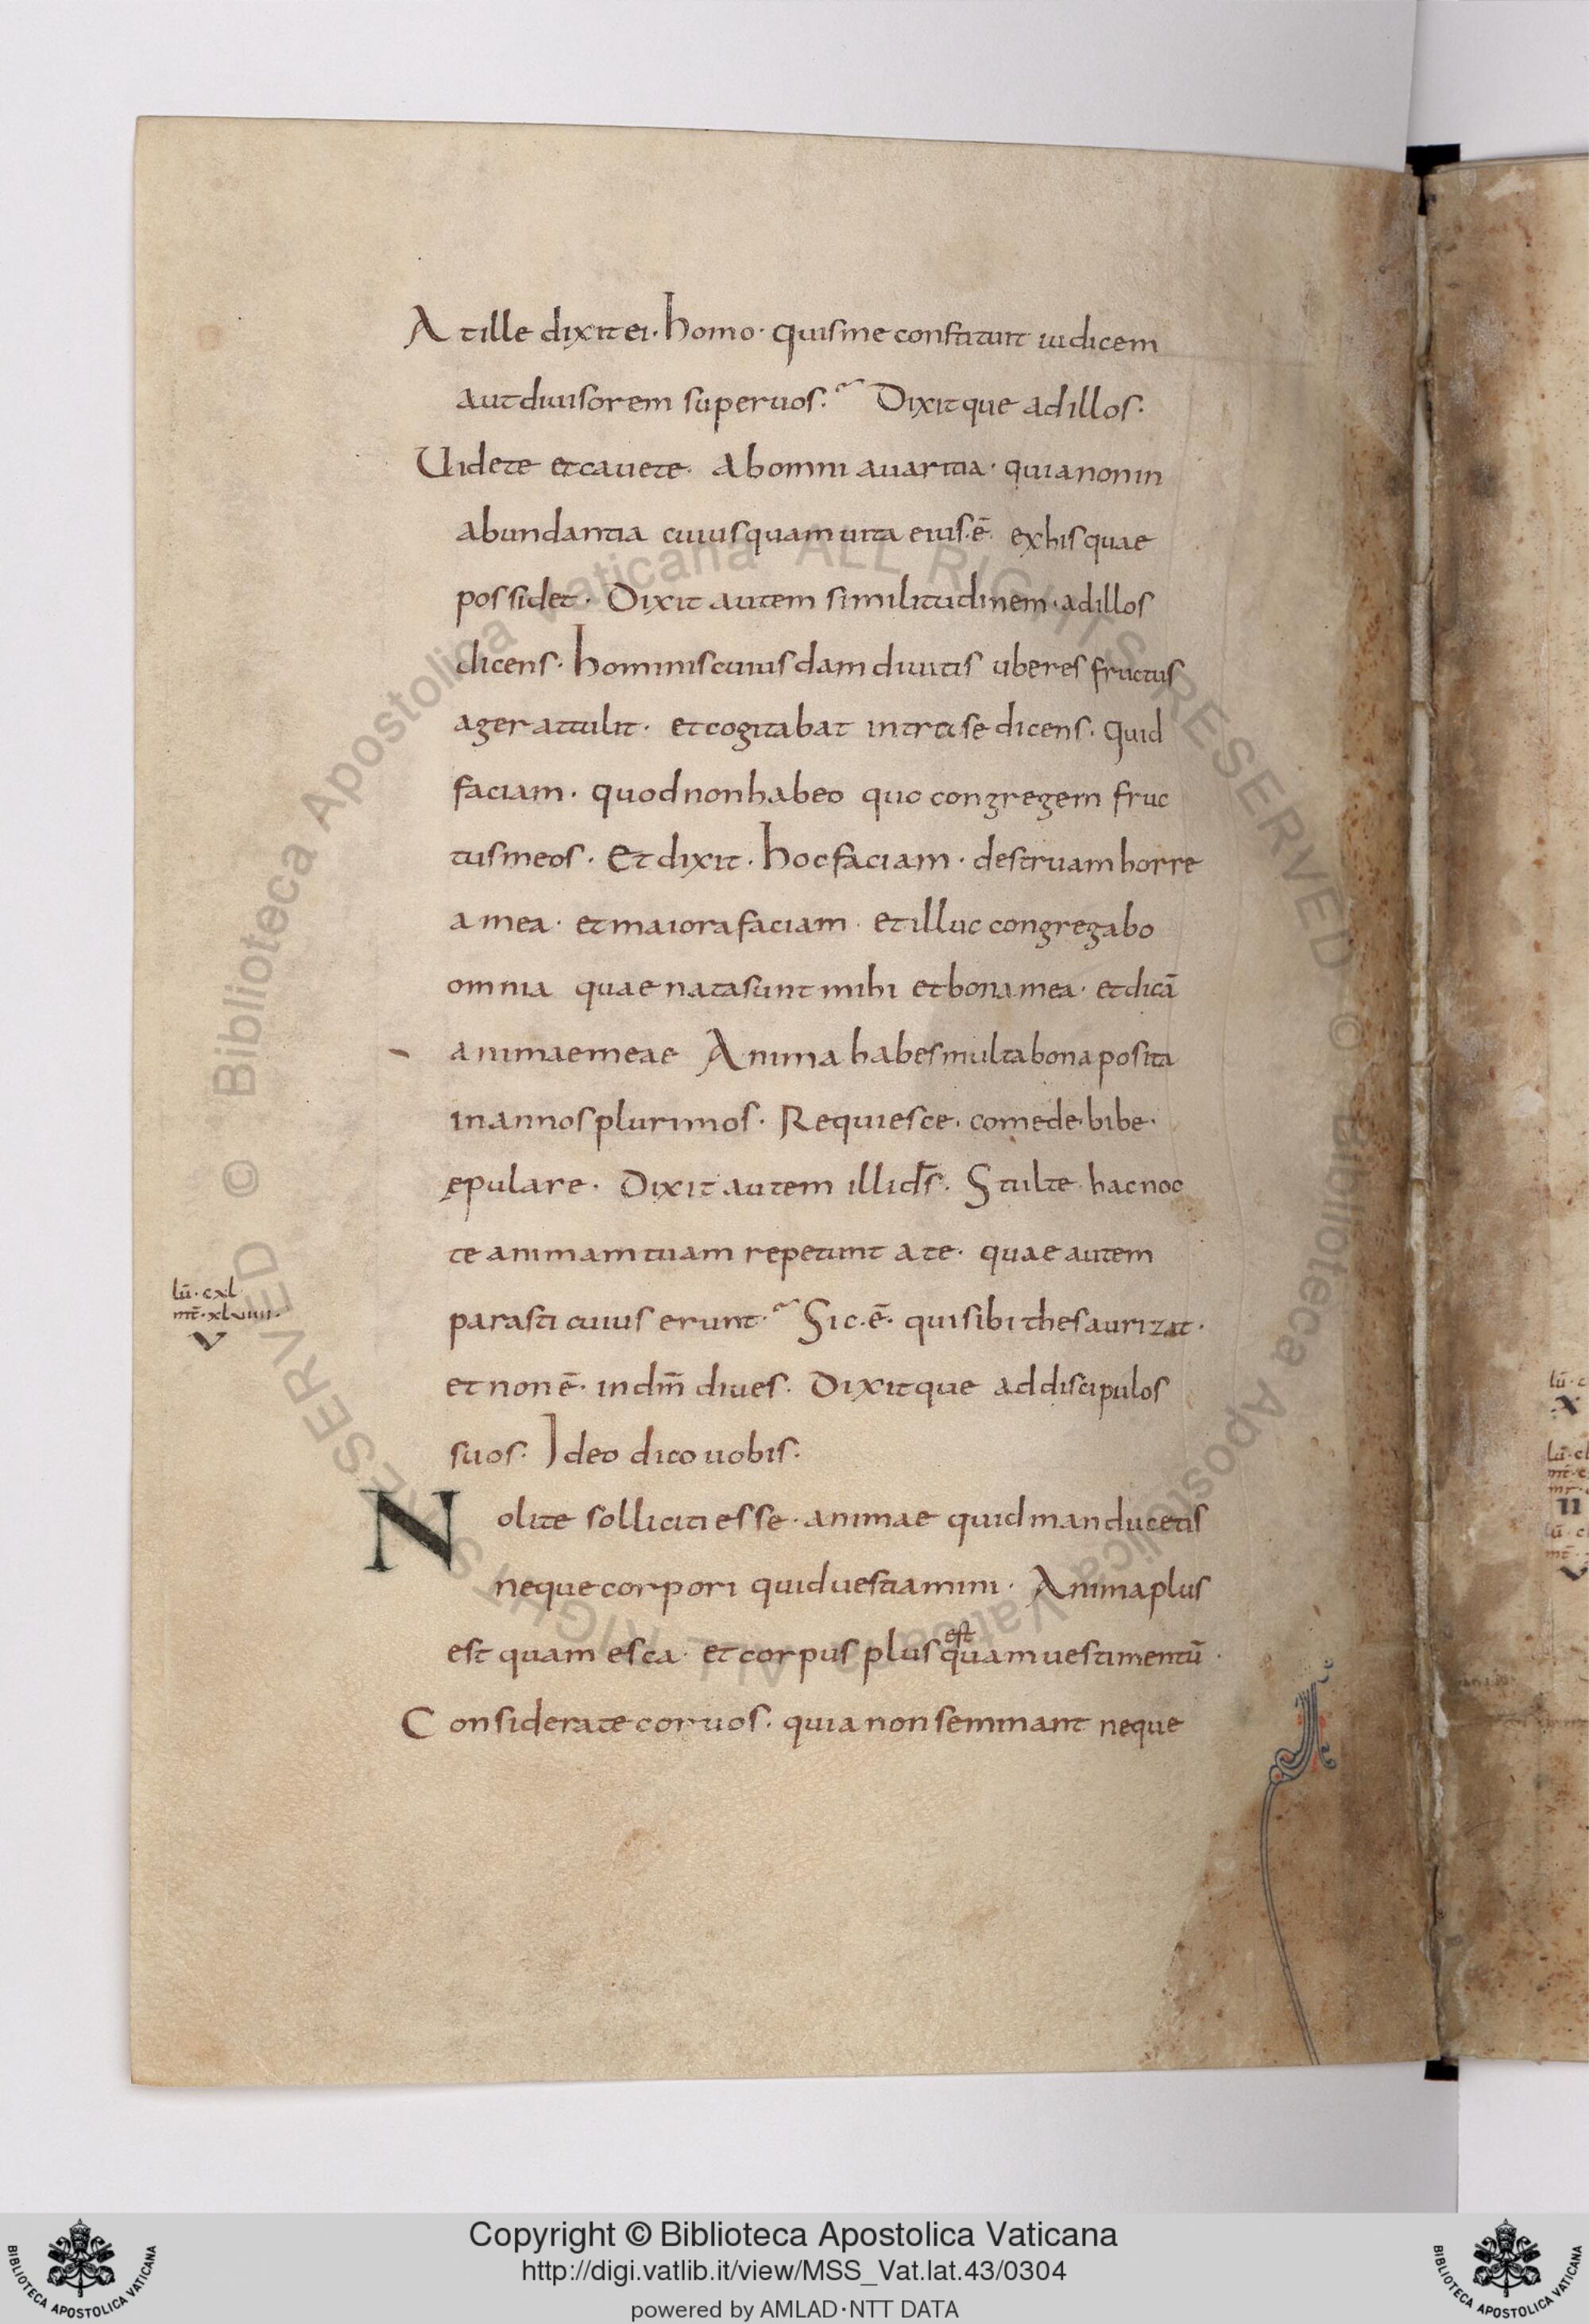 At ille dixit ei· homo· quis me constituit iudicem
aut diuisorem super uos· Dixitque ad illos·
Uidete et cauete· ab omni auaritia· quia non in
abundantia cuiusquam uita eius ē· ex his quae
possidet· Dixit autem similitudinem· ad illos
dicens· hominis cuiusdam diuitis uberes fructus
ager attulit· et cogitabat intra se dicens· quid
faciam· quod non habeo quo congregem fruc
tus meos· Et dixit· hoc faciam· destruam horre
a mea· et maiora faciam· et illuc congregabo
omnia quae nata sunt mihi et bona mea· et dicā
animae meae Anima habes multa bona posita
in annos plurimos· Requiesce· comede· bibe·
epulare· Dixit autem illi d̄s· Stulte· hac noc
te animam tuam repetunt a te· quae autem
lū· cxl
mt̄· xlviiii·
V
parasti cuius erunt· Sic· ē· qui sibi thesaurizat·
et non ē· in dm̄ diues· Dixitque ad discipulos
suos· Ideo dico uobis·
Nolite solliciti esse· animae quid manducetis
neque corpori quid uestiamini· Anima plus
est quam esca· et corpus plus est quam uestimentū·
Considerate coruos· quia non seminant neque
Copyright © Biblioteca Apostolica Vaticana
http://digi.vatlib.it/view/MSS_Vat.lat.43/0304
powered by AMLAD·NTT DATA
BIBLIOTECA APOSTOLICA VATICANA
BIBLIOTECA APOSTOLICA VATICANA